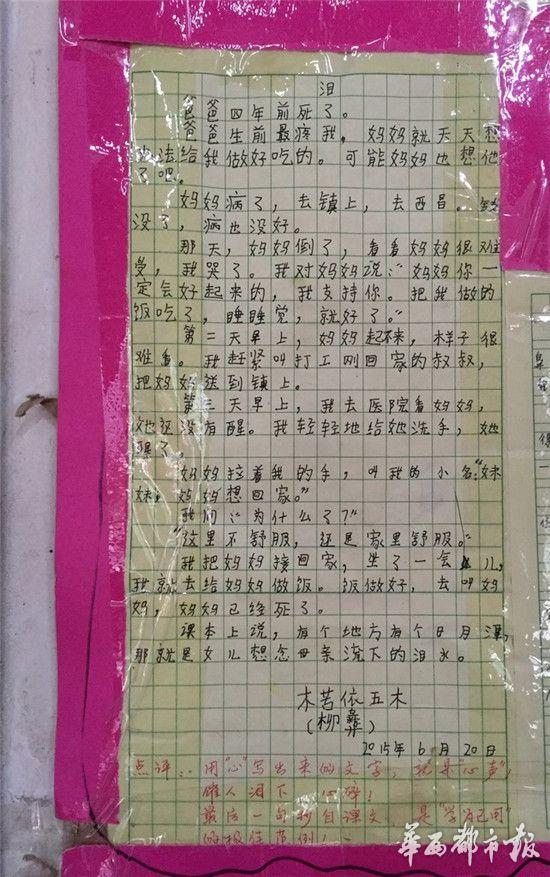 泪
爸爸四年前死了。
爸爸生前最疼我,妈妈就天天想
办法给我做好吃的。可能妈妈也想他
了吧。
妈妈病了,去镇上,去西昌。钱
没了,病也没好。
那天,妈妈倒了,看看妈妈很难
受,我哭了。我对妈妈说:“妈妈你一
定会好起来的,我支持你。把我做的
饭吃了,睡睡觉,就好了。”
第二天早上,妈妈起不来,样子很
难看。我赶紧叫打工刚回家的叔叔,
把妈妈送到镇上。
第三天早上,我去医院看妈妈,
她还没有醒。我轻轻地给她洗手,她
醒了。
妈妈拉着我的手,叫我的小名:“妹
妹,妈妈想回家。”
我问:“为什么了?”
“这里不舒服,还是家里舒服。”
我把妈妈接回家,坐了一会儿,
我就去给妈妈做饭。饭做好,去叫妈
妈,妈妈已经死了。
课本上说,有个地方有个日月潭,
那就是女儿想念母亲流下的泪水。
木苦依五木
(柳彝)
2015年6月20日
点评:用“心”写出来的文字,就是“心声”,
催人泪下 心碎!
最后一句抄自课文,是“学为己用”
的极佳范例!
华西都市报